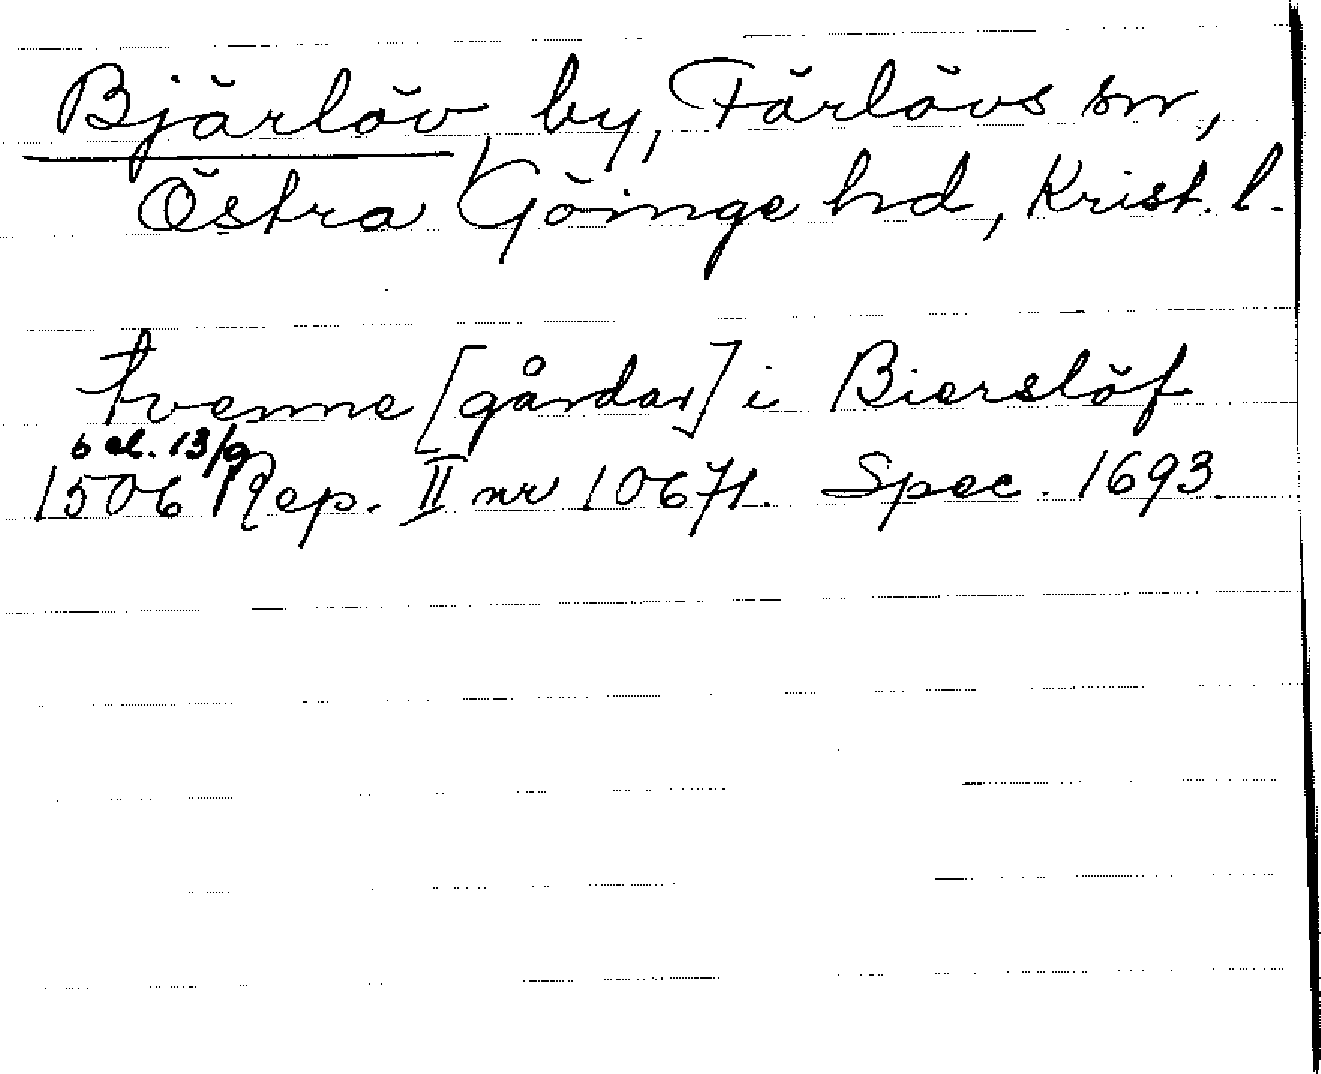 Bjärlöv by, Färlövs sn,
Östra Göinge hd, Krist. l.
tvenne [gårdar] i Bierslöf
13/9
1506 Rep. II nr 10671. Spec. 1693.